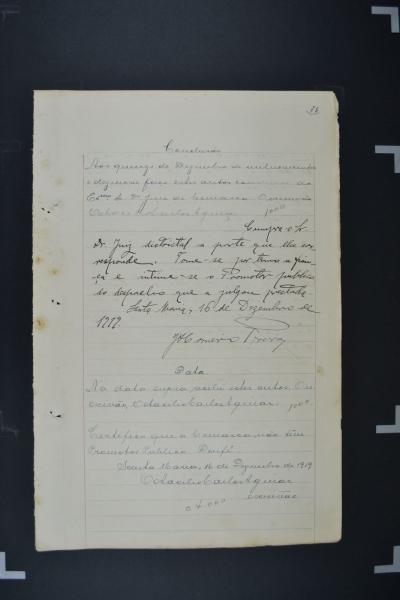 36
Conclusão
Aos quinze de Dezembro de mil novecentos
e dezenove faço estes autos conclusos ao
Exmo Sr. Dr. Juiz da Comarca. O escrivão
Octacilio Carlos Aguiar 1000
Cumpra o Sr.
Dr. Juiz districtal a parte que lhe cor-
responde. Tome-se por termo a fian-
ça e intime-se o Promotor publico
do despacho que a julgou prestada.
Santa Maria, 16 de Dezembro de
1919.
Data
Na data supra recebi estes autos. O es-
crivão, Octacilio Carlos Aguiar. 1000
Certifico que a Comarca não tem
Promotor Publico. Doufé.
Santa Maria, 16 de Dezembro de 1919
Octacilio Carlos Aguiar
escrivão